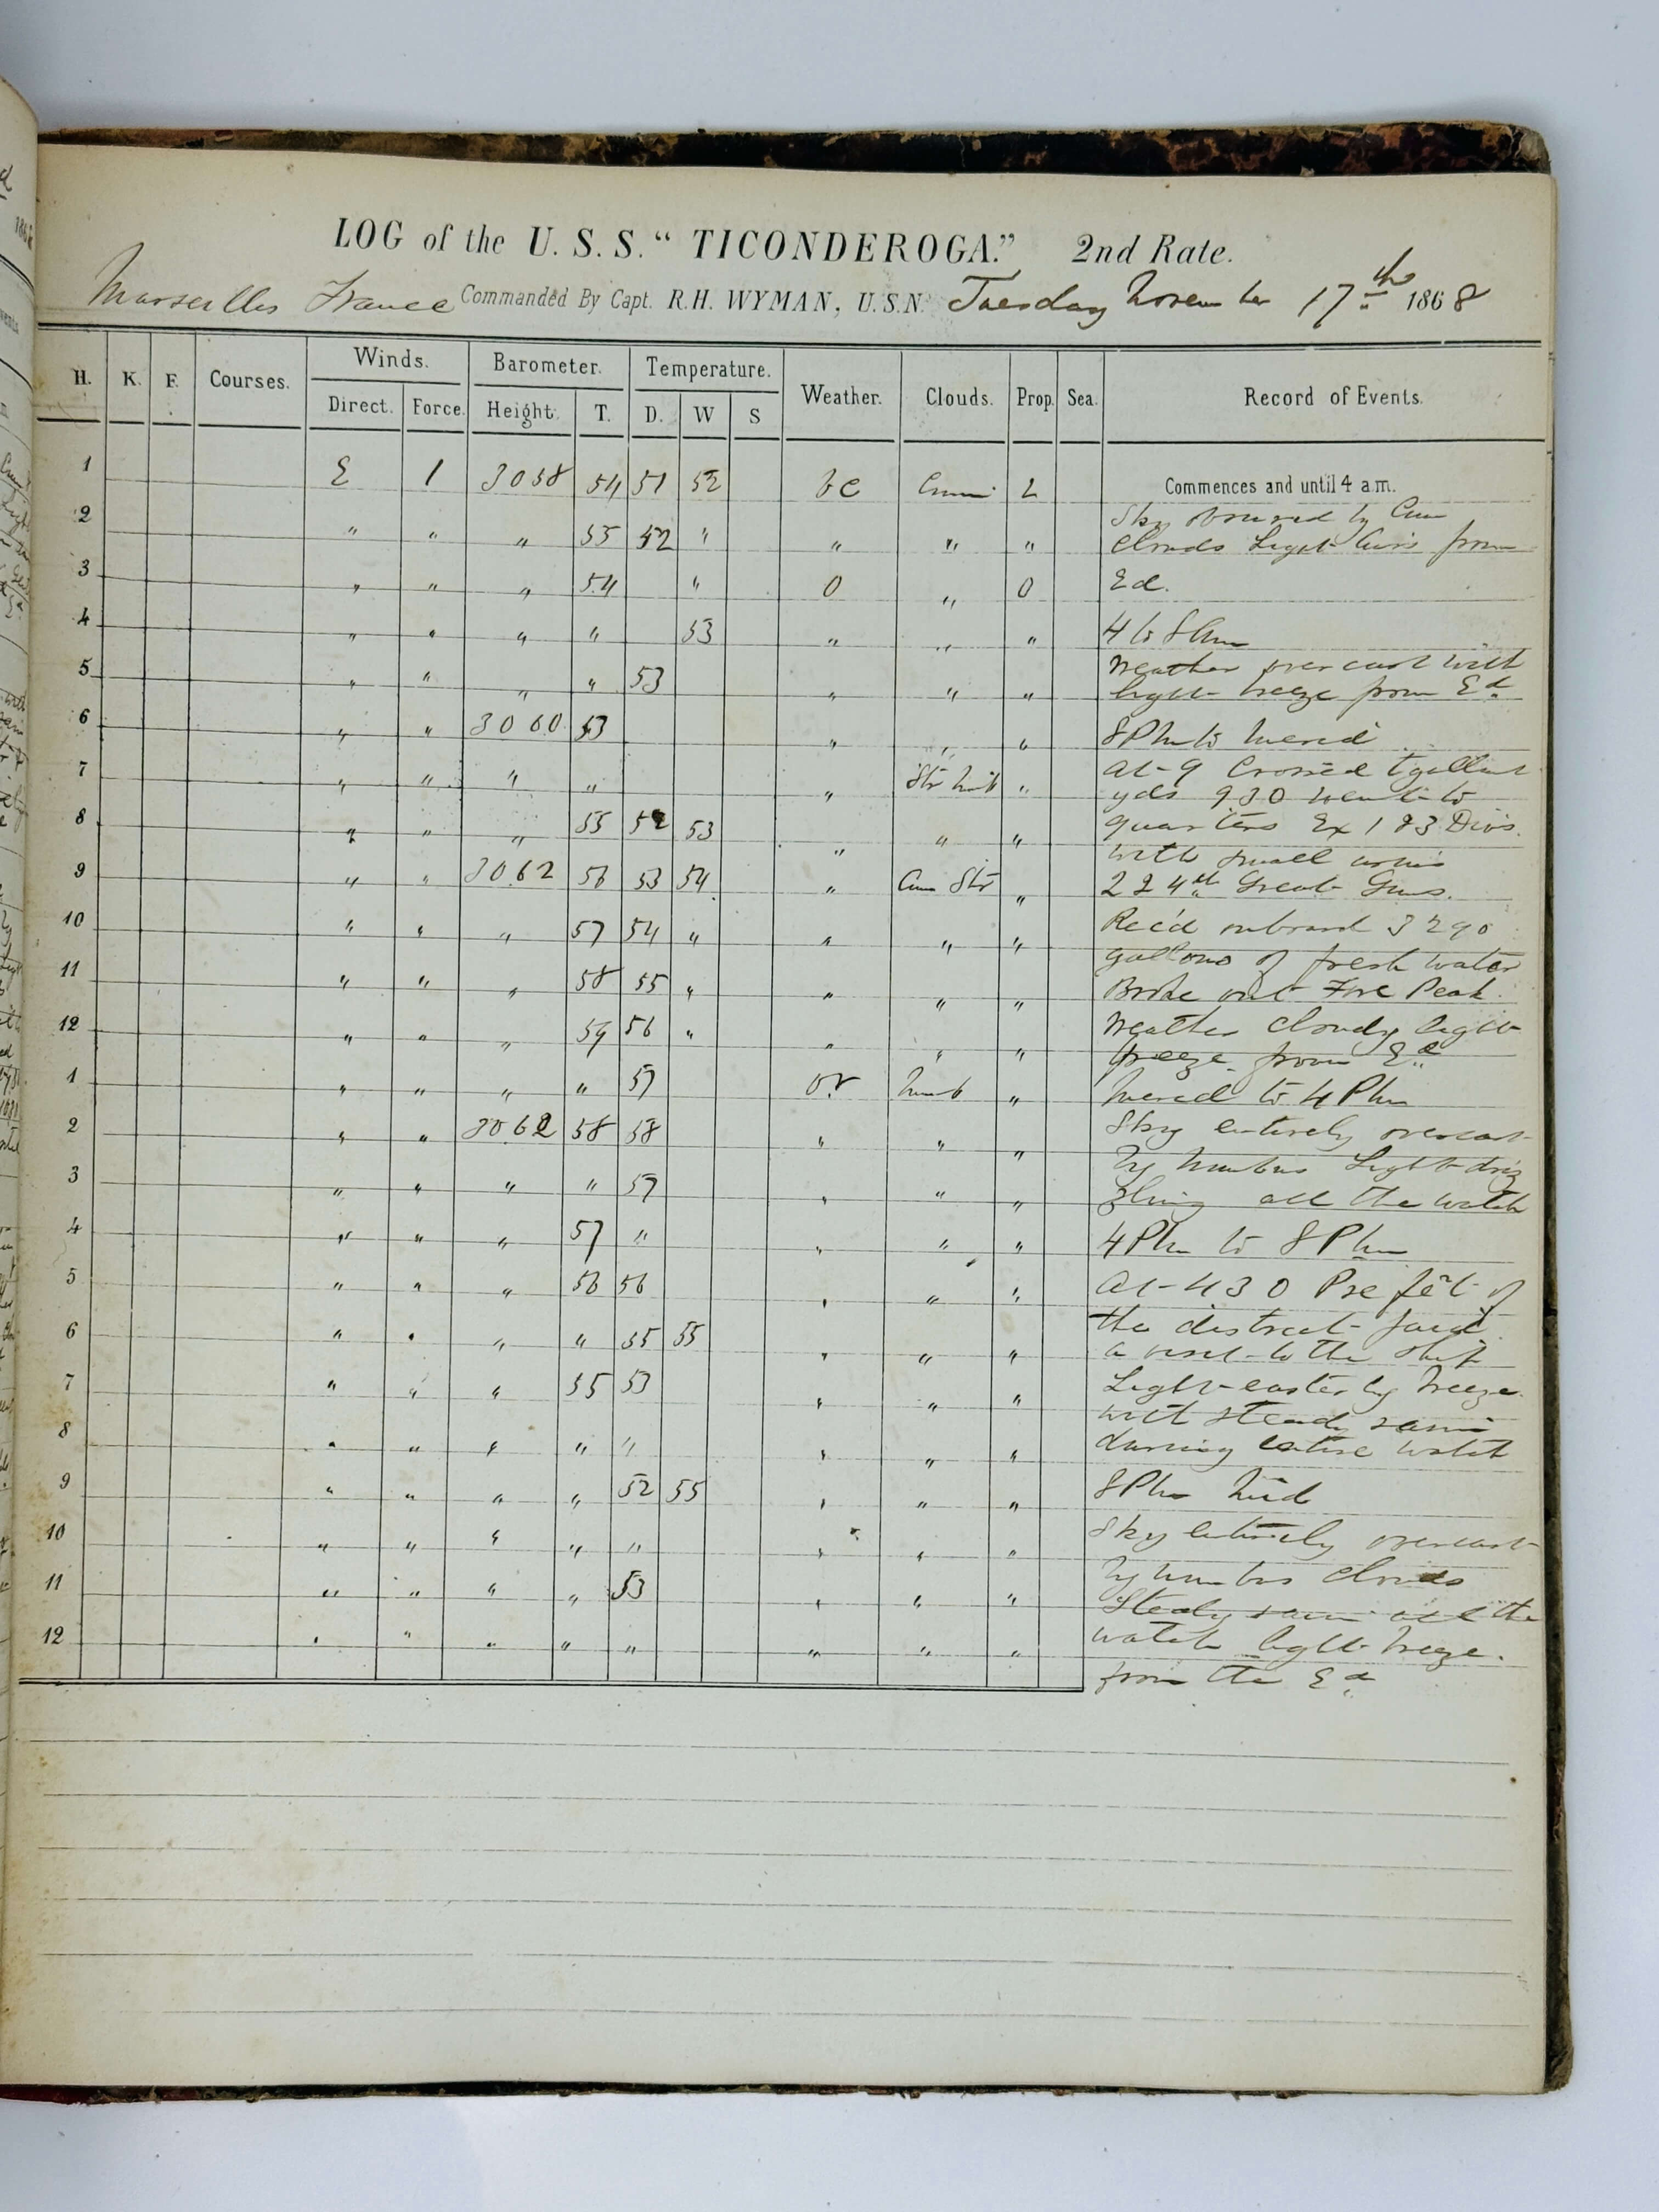 LOG of the U. S. S. “ TICONDEROGA.” 2nd Rate.
Marseilles France Commanded By Capt. R.H. WYMAN, U.S.N. Tuesday November 17th 1868
H. K. F. Courses. Winds. Barometer. Temperature. Weather. Clouds. Prop. Sea. Record of Events.
Direct. Force. Height. T. D. W S
1 E 1 3058 54 51 52 bc Cumi 2 Commences and until 4 a.m.
Sky obscured by Cum
2 " " " 55 52 " " " " clouds Light airs from
3 " " " 54 " O " O Ed.
4 " " " " 53 " " " 4 to 8 Am
Weather overcast with
5 " " " " 53 " " " light breeze from Ed
6 " " 3060 53 " " " 8 to Merid
At 9 Crossed tgallant
7 " " " " " Str Nimb " yds 930 went to
8 " " " 55 52 53 " " " quarters Ex 1 & 3 Divs.
with small arms
9 " " 3062 56 53 54 " Cum Str " 2 & 4th Great Guns.
10 " " " 57 54 " " " " Rec'd onboard 3290
gallons of fresh water
11 " " " 58 55 " " " " Broke out Fore Peak.
12 " " " 59 56 " " " " Weather cloudy light
breeze from Ed
1 " " " " 57 or Nimb " Merid to 4 Pm
2 " " 3062 58 58 " " " Sky entirely overcast
by Nimbus Light driz
3 " " " " 57 " " " zling all the watch
4 " " " 57 " " " " 4 Pm to 8 Pm
5 " " " 56 56 " " " At 430 Prefêt of
the district paid
6 " " " " 55 55 " " " a visit to the ship
7 " " " 55 53 " " " Light easterly breeze
with steady rain
8 " " " " " " " " during entire watch
9 " " " " 52 55 " " " 8 Pm Mid
10 " " " " " " " " Sky entirely overcast
by nimbus clouds
11 " " " " 53 " " " Steady rain all the
12 " " " " " " " " watch light breeze.
from the Ed